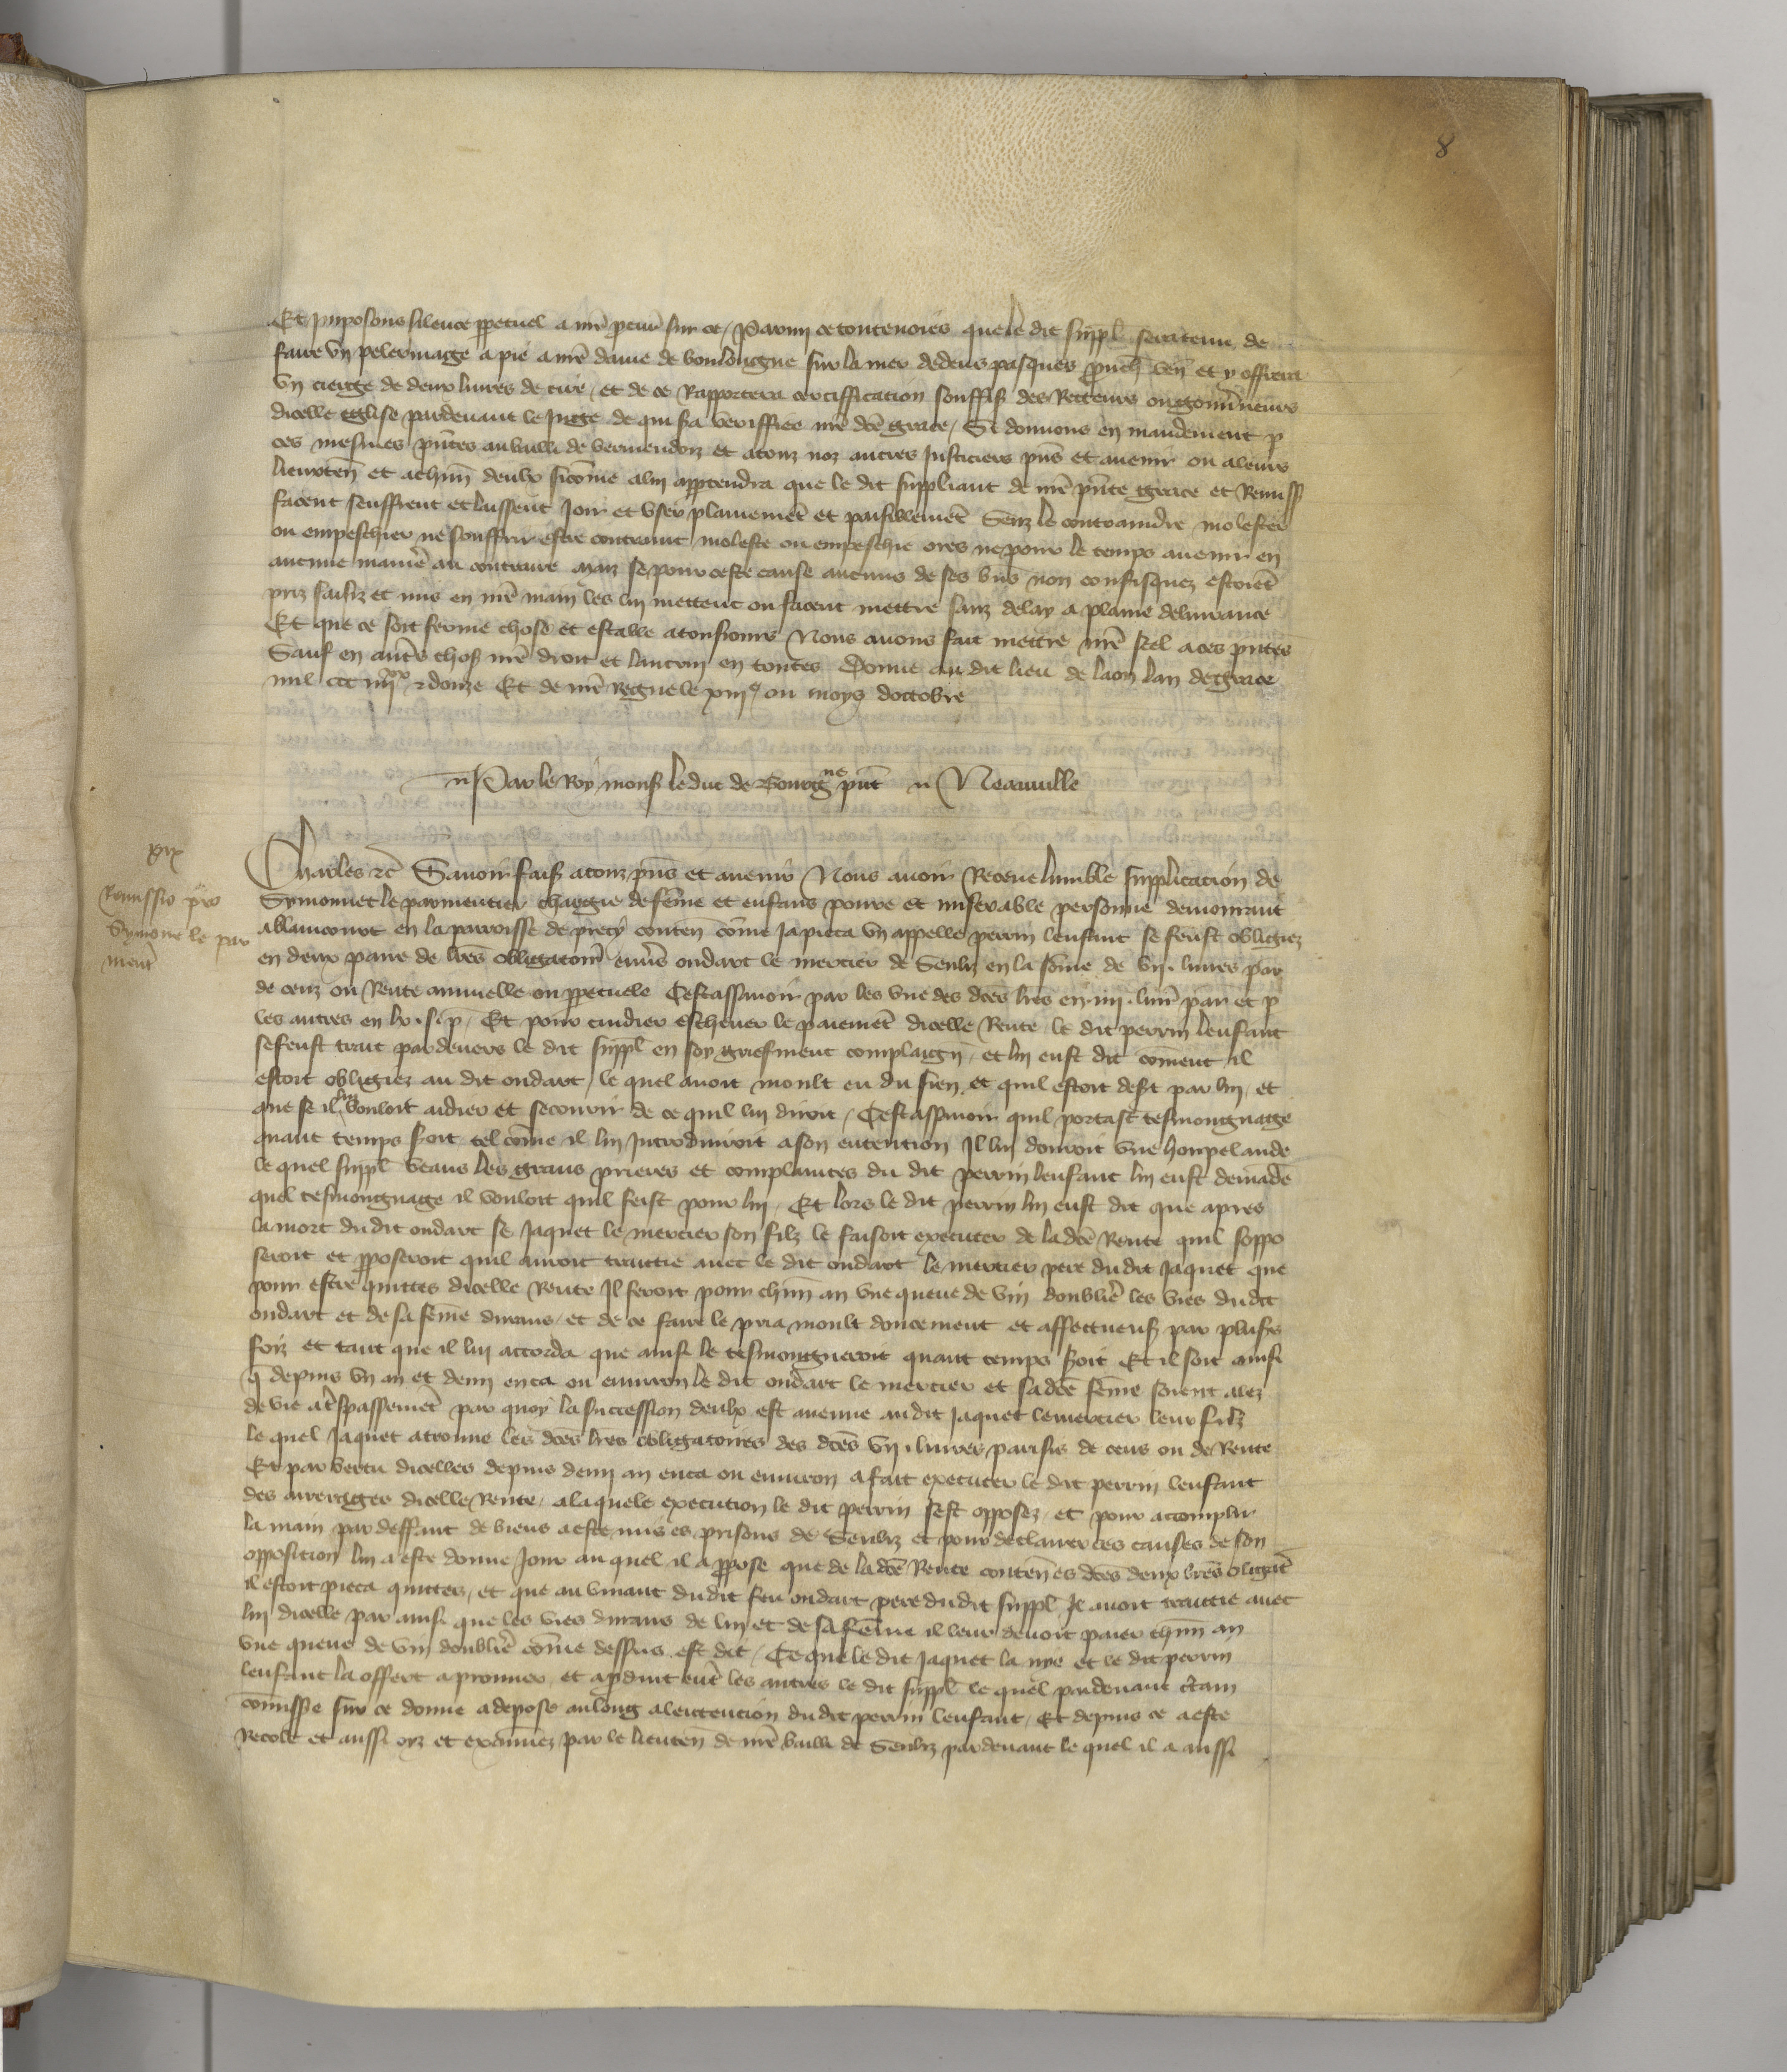 8
Et imposons silence ppetuel a nr̃e pcur̃ sur ce / Parmi ce toutesvoies que le dit suppl̃ sera tenu de
faire vn pelerinaige a pie a nr̃e dame de bouloigne sur la mer dedens pasques prouch̃ ven̄ et y offrera
vn cierge de deux liures de cire / et de ce Rapportera certiffication souffiß des Recteurs ou gouũneurs
dicelle eglise pardeuant le Juge de qui sã veriffiee nr̃e dc̃e grace / Si donnons en mandement p
ces mesmes pñtes au bailli de vermendoiz et a touz noz autres Justiciers pñs et auenir ou a leurs
lieuxten̄ et a chũn deulx sicõme a luy appartendra que le dit suppliant de nr̃e pñte grace et Remiss̃
facent seuffrent et laissent Joir et vser plainemẽt et paisiblemẽt Senz le contraindre molester
ou empeschier ne souffrir estre contraint moleste ou empeschie ores ne pour le temps auenir en
aucune manieˀ au contraire Maiz se pour ceste cause aucuns de ses biẽs non confisquez estoiẽt
priz saisiz et mis en nr̃e main les lui mettent ou facent mettre sanz delay a plaine deliurance
Et que ce soit ferme chose et estable a tousiours Nous auons fait mettre nr̃e scel a ces pñtes
Sauf en autˀs choß nr̃e droit et lautruy en toutes Donne au dit lieu de laon lan de grace
mil ccc iiijxx et douze Et de nr̃e Regne le xiije ou moys doctobre
Par le Roy mons̃ le duc de Bourgne pñt Neauuille
xix
Remissio pro
Symone le par
ment̃
Charles etc̃ Sauoir faisõs a touz pñs et auenir Nous auoir Receue lumble supplicacion de
Symonnet le parmentier chargie de fẽme et enfans poure et miserable personne demourant
a blaincourt en la parroisse de precy conten̄ cõme Ja pieca vn appelle perrin lenfant se feust obligiez
en deux paire de lrẽs obligatoirˀ enuˀs oudart le mercier de Senliz en la sõme de vij. liures par̃
de cenz ou Rente annuelle ou ppetuele Cestassauoir par les vne des dc̃es lrẽs en iiij. liur̃ par̃ et p
les autres en lx. s̃. p̃. Et pour cuidier escheuer le paiemẽt dicelle Rente le dit perrin lenfant
se feust trait pardeuers le dit suppl̃ en soy griefment complaign̄ et lui eust dit cõment il
estoit obligiez au dit oudart / le quel auoit moult eu du sien et quil estoit desẽt par lui / et
que se il lui vouloit aidier et secourir de ce quil lui diroit / Cestassauoir quil portast tesmoingnage
quant temps soit tel cõme il lui Introduiroit a son entention Il lui donroit vne houpelande
le quel suppl̃ veans les grans prieres et complaintes du dit perrin lenfant lui eust demãde
quel tesmoingnage il vouloit quil feist pour lui / Et lors le dit perrin lui eust dit que apres
la mort du dit oudart se Jaquet le mercier son filz le faisoit executer de la dc̃e Rente quil soppo
seroit et pposeroit quil auroit traittie auec le dit oudart le mercier pere du dit Jaquet que
pour estre quittes dicelle Rente Il seroit pour chũn an vne queue de vin doublieˀ les vies du dit
oudart et de sa fẽme durans / et de ce faire le pria moult doucement et affectueuß par plusrs̃
foiz et tant que il lui accorda que ainsi le tesmoingneroit quant temps soit Et il soit ainsi
q̃ depuis vn an et demi enca ou enuiron le dit oudart le mercier et sa dc̃e fẽme soient alez
de vie a tˀspassemẽt par quoy la succession deulx est auenue au dit Jaquet le mercier leur filz
le quel Jaquet a trouue les dc̃es lrẽs obligatoires des dc̃es vij. liures parisis de cens ou de Rente
Et par vertu dicelles depuis demi an enca ou enuiron a fait executer le dit perrin lenfant
des arrerages dicelle Rente / a laquele execution le dit perrin sest opposez / et pour accomplir
la main par deffaut de biens a este mis es prisons de Senliz et pour declairer les causes de son
opposition lui a este donne Jour au quel il a ppose que de la dc̃e Rente conten̄ es dc̃es deux lrẽs obligat̃
il estoit pieca quittes / et que au viuant du dit feu oudart pere du dit suppl̃ Il auoit traittie auec
lui dicelle par ainsi que les vies durans de lui et de sa fẽme il leur deuoit paier chũn an
vne queue de vin doublieˀ cõme dessus est dit / Ce que le dit Jaquet la nye et le dit perrin
lenfant la offert a prouuer et a pduit entˀ les autres le dit suppl̃ le quel pardeuant cˀtain
cõmisse sur ce donne a depose au long a lentencion du dit perrin lenfant / Et depuis ce a este
Recole et aussi oiz et examinez par le lieuten̄ de nr̃e bailli de Senliz pardeuant le quel il a aussi